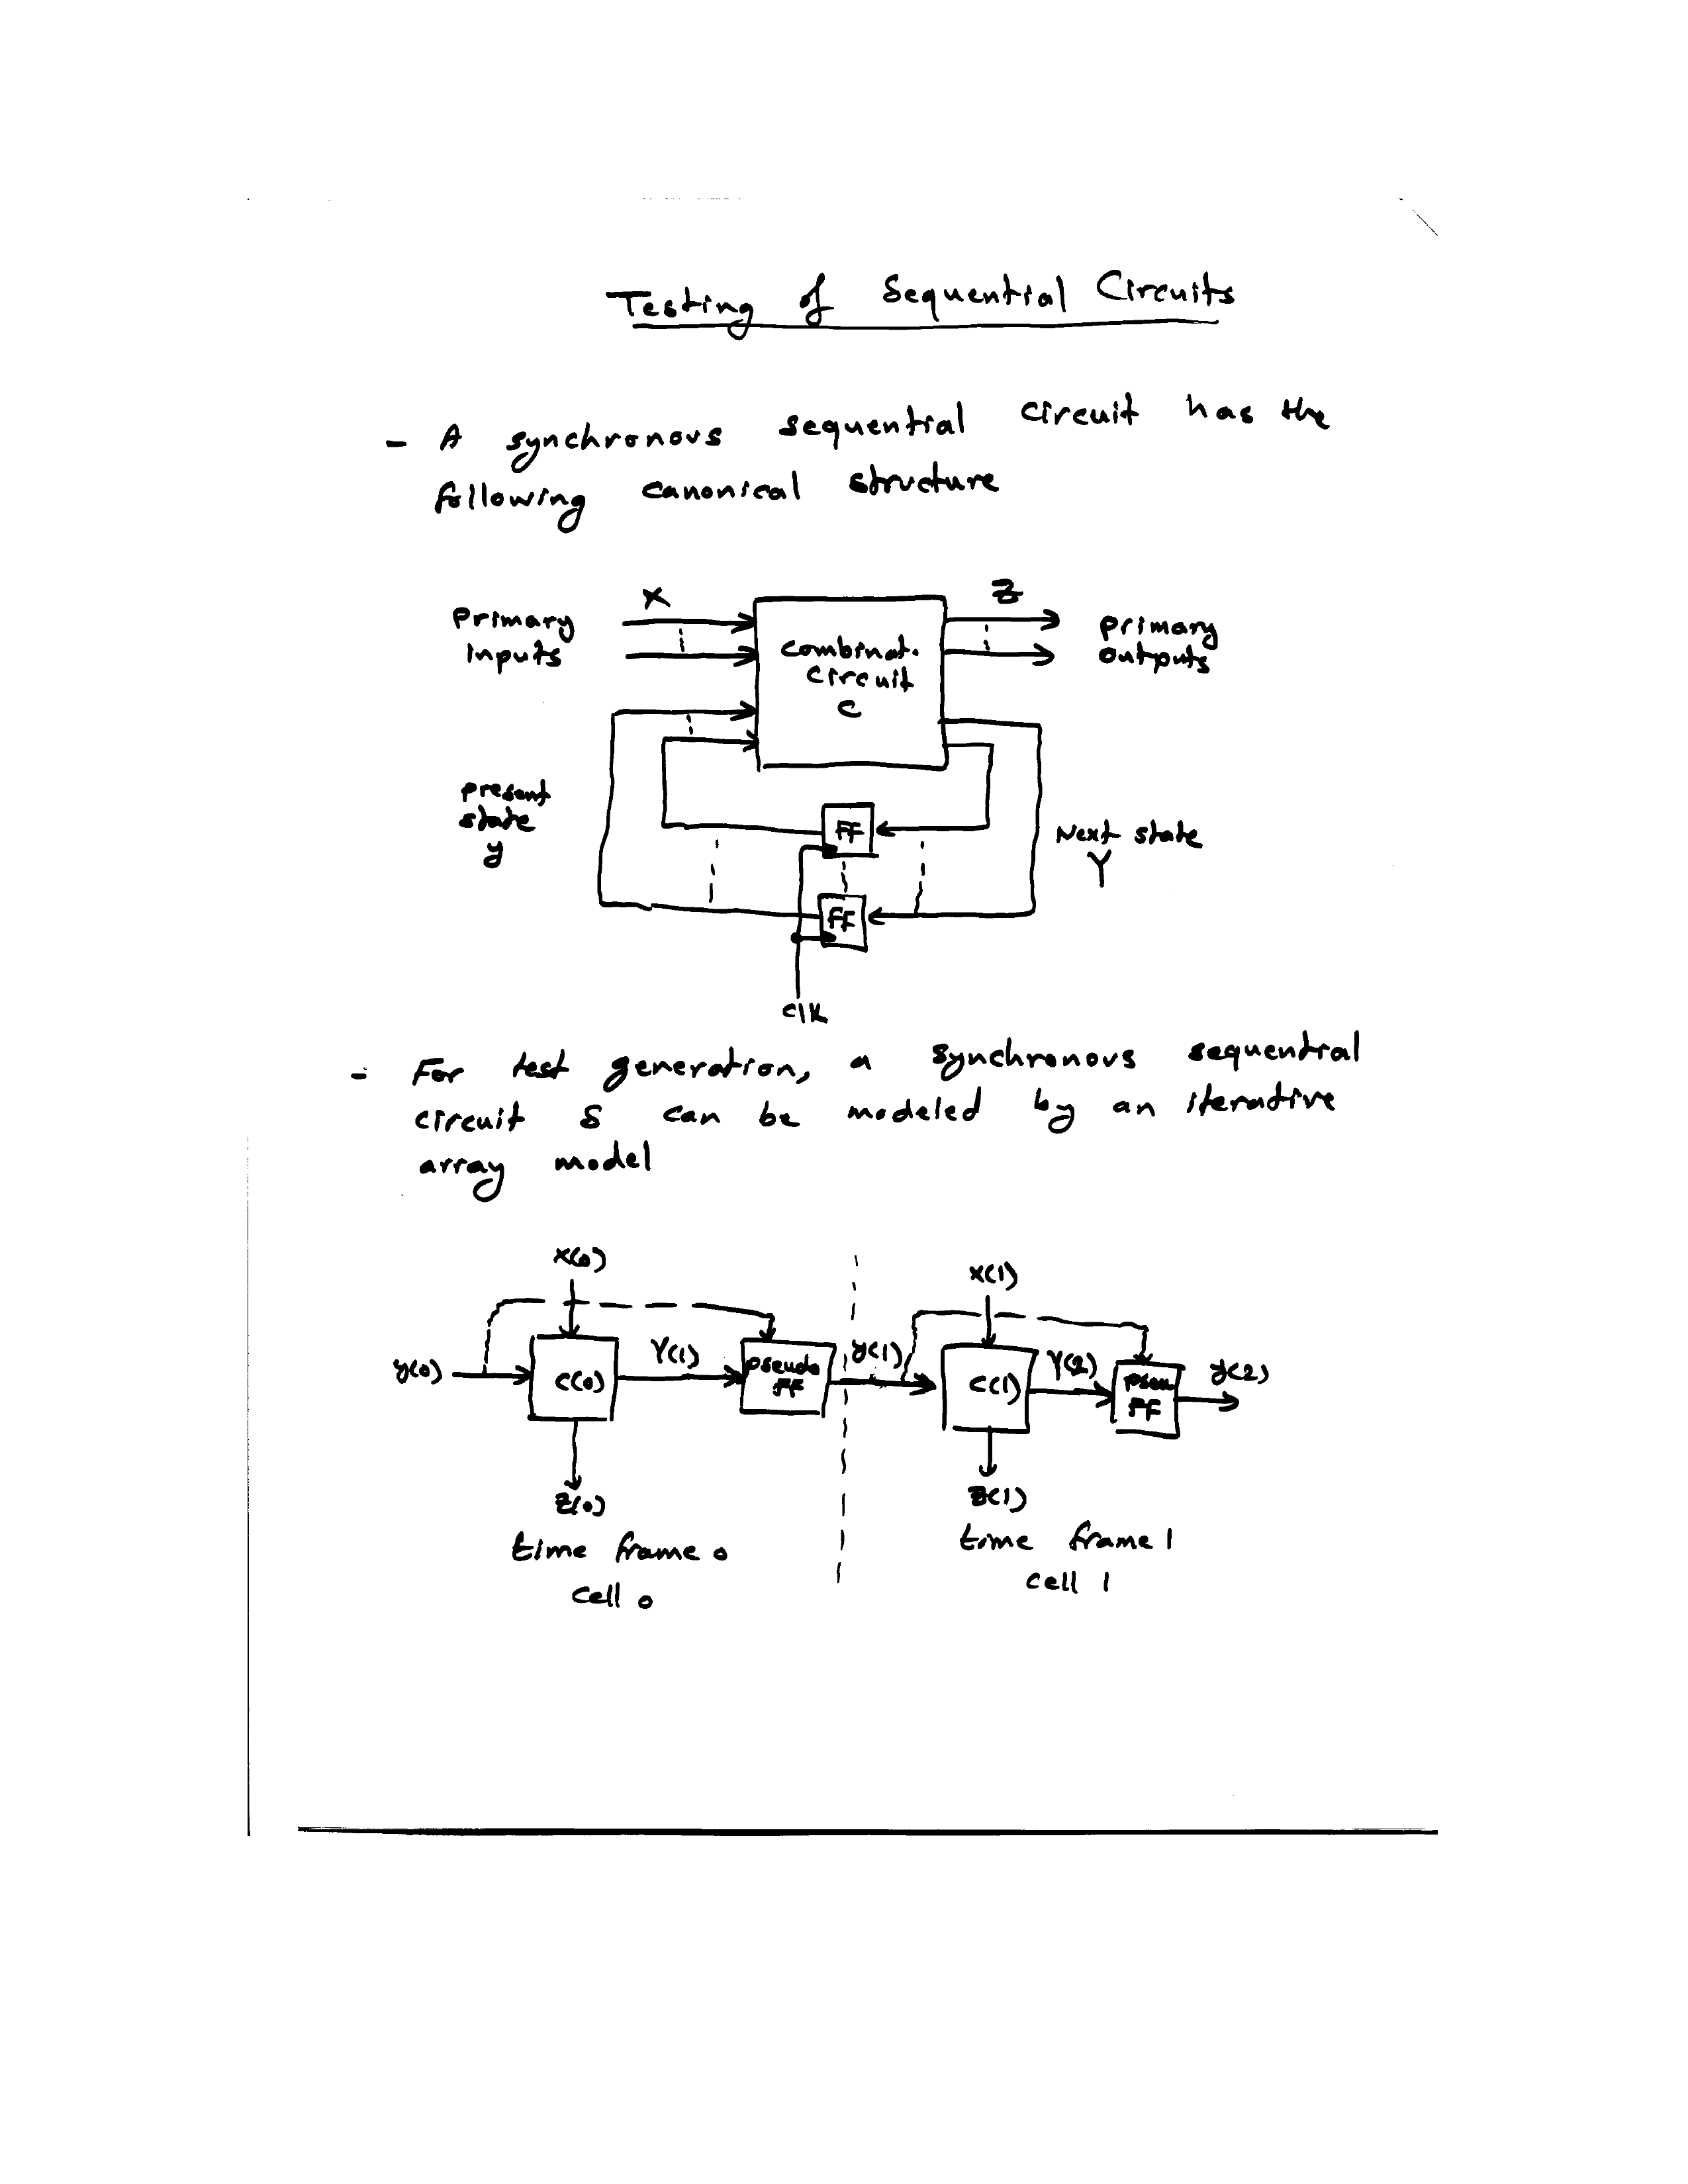 Testing of Sequential Circuits
- A synchronous sequential circuit has the
following canonical structure
X
Z
Primary
inputs
combinat.
circuit
C
primary
outputs
present
state
y
FF
Next state
Y
FF
clk
- For test generation, a synchronous sequential
circuit S can be modeled by an iterative
array model
x(0)
x(1)
y(0)
C(0)
Y(1)
pseudo
FF
y(1)
C(1)
Y(2)
pseu
FF
y(2)
Z(0)
Z(1)
time frame 0
time frame 1
cell 0
cell 1